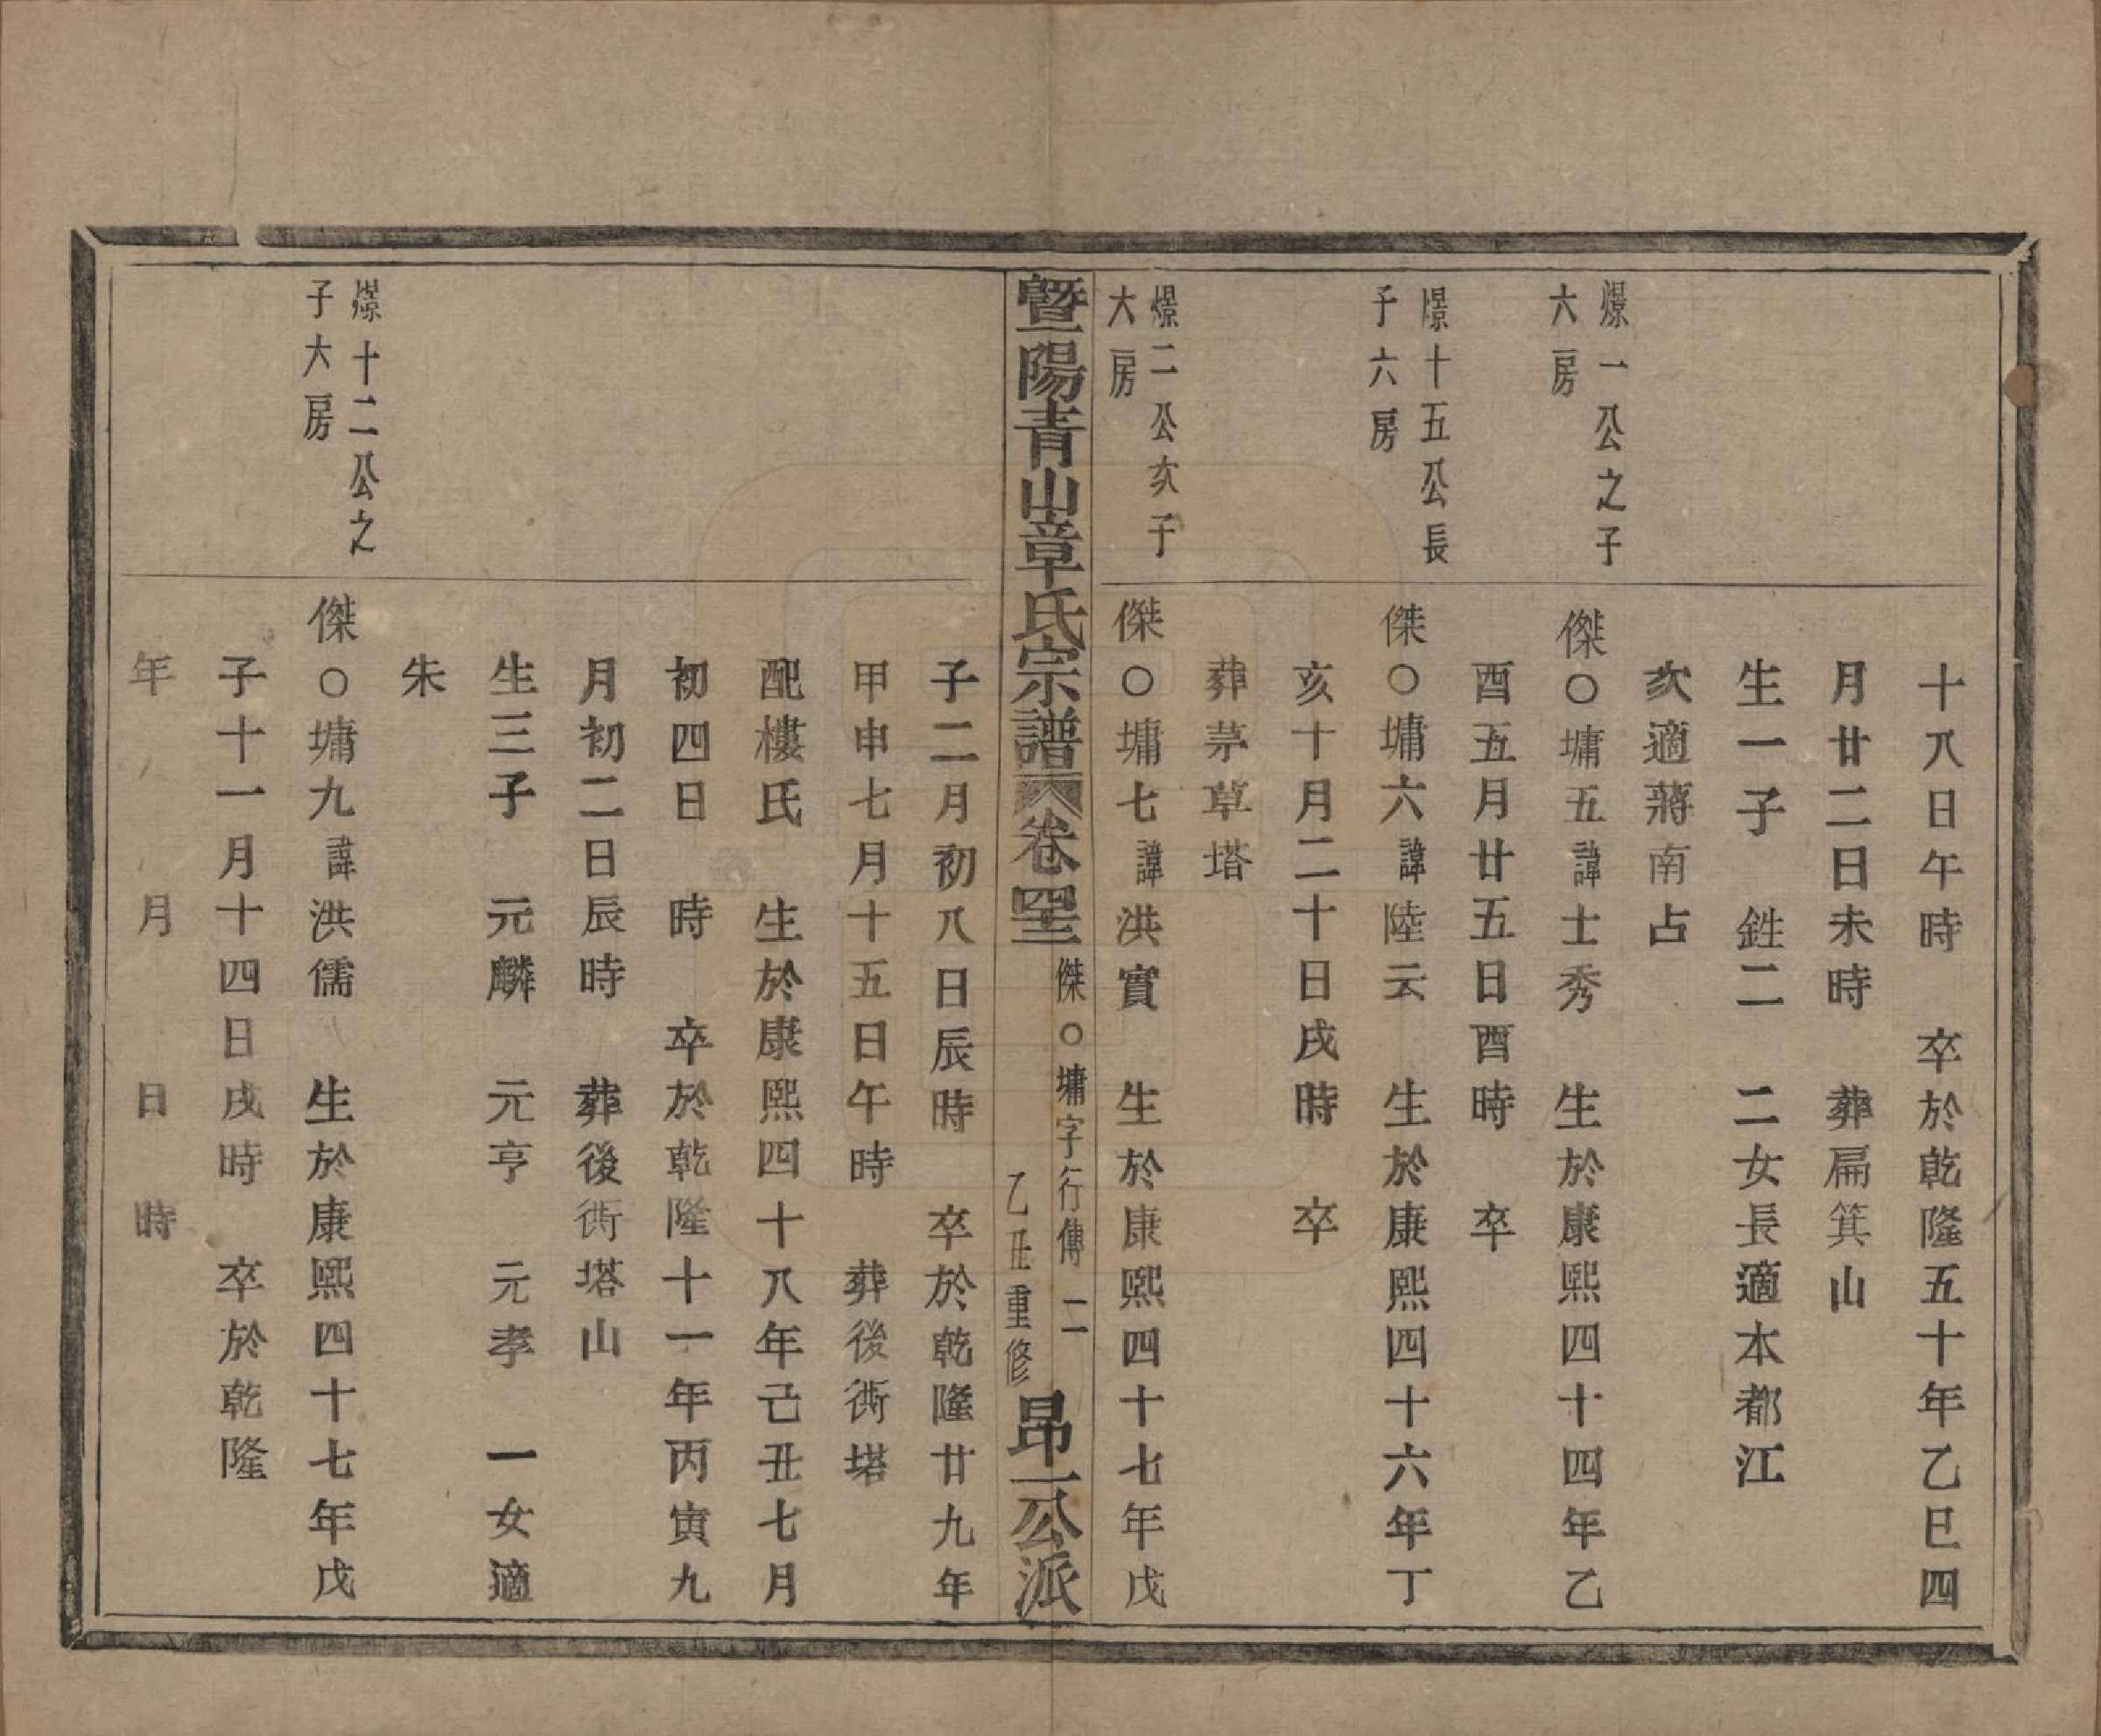 十八日午時　卒於乾隆五十年乙巳四
月廿二日未時　葬扁箕山
生一子　鉎二　二女長適本都江
次適蔣南占
燝一公之子
六房
傑○墉五諱士秀　生於康熙四十四年乙
酉五月廿五日酉時　卒
燝十五公長
子六房
傑○墉六諱陸云　生於康熙四十六年丁
亥十月二十日戌時　卒
葬茅草塔
燝二公次子
大房
傑○墉七諱洪實　生於康熙四十七年戊
暨陽青山章氏宗譜卷四三
傑○墉字行傳　二
乙丑重修
昂一公派
子二月初八日辰時　卒於乾隆廿九年
甲申七月十五日午時　葬後衖塔
配樓氏　生於康熙四十八年己丑七月
初四日　時　卒於乾隆十一年丙寅九
月初二日辰時　葬後衖塔山
生三子　元麟　元亨　元孝　一女適
朱
燝十二公之
子大房
傑○墉九諱洪儒　生於康熙四十七年戊
子十一月十四日戌時　卒於乾隆
年　月　日　時